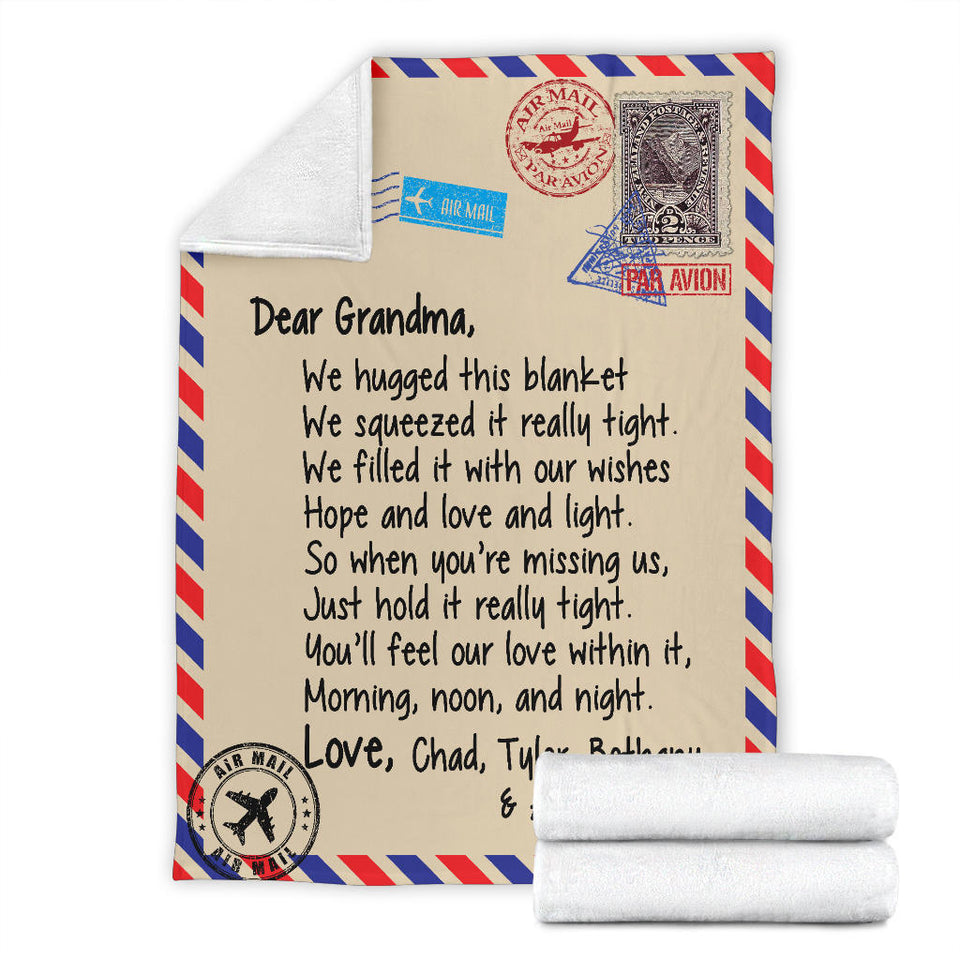 AIR MAIL
Air Mail
PAR AVION
AIR MAIL
ZEALAND POSTAGE & REVENUE
D 2
TWO PENCE
PAR AVION
Dear Grandma,
We hugged this blanket
We squeezed it really tight.
We filled it with our wishes
Hope and love and light.
So when you're missing us,
Just hold it really tight.
You'll feel our love within it,
Morning, noon, and night.
Love, Chad, Tyler, Bethany
&
AIR MAIL
AIR MAIL